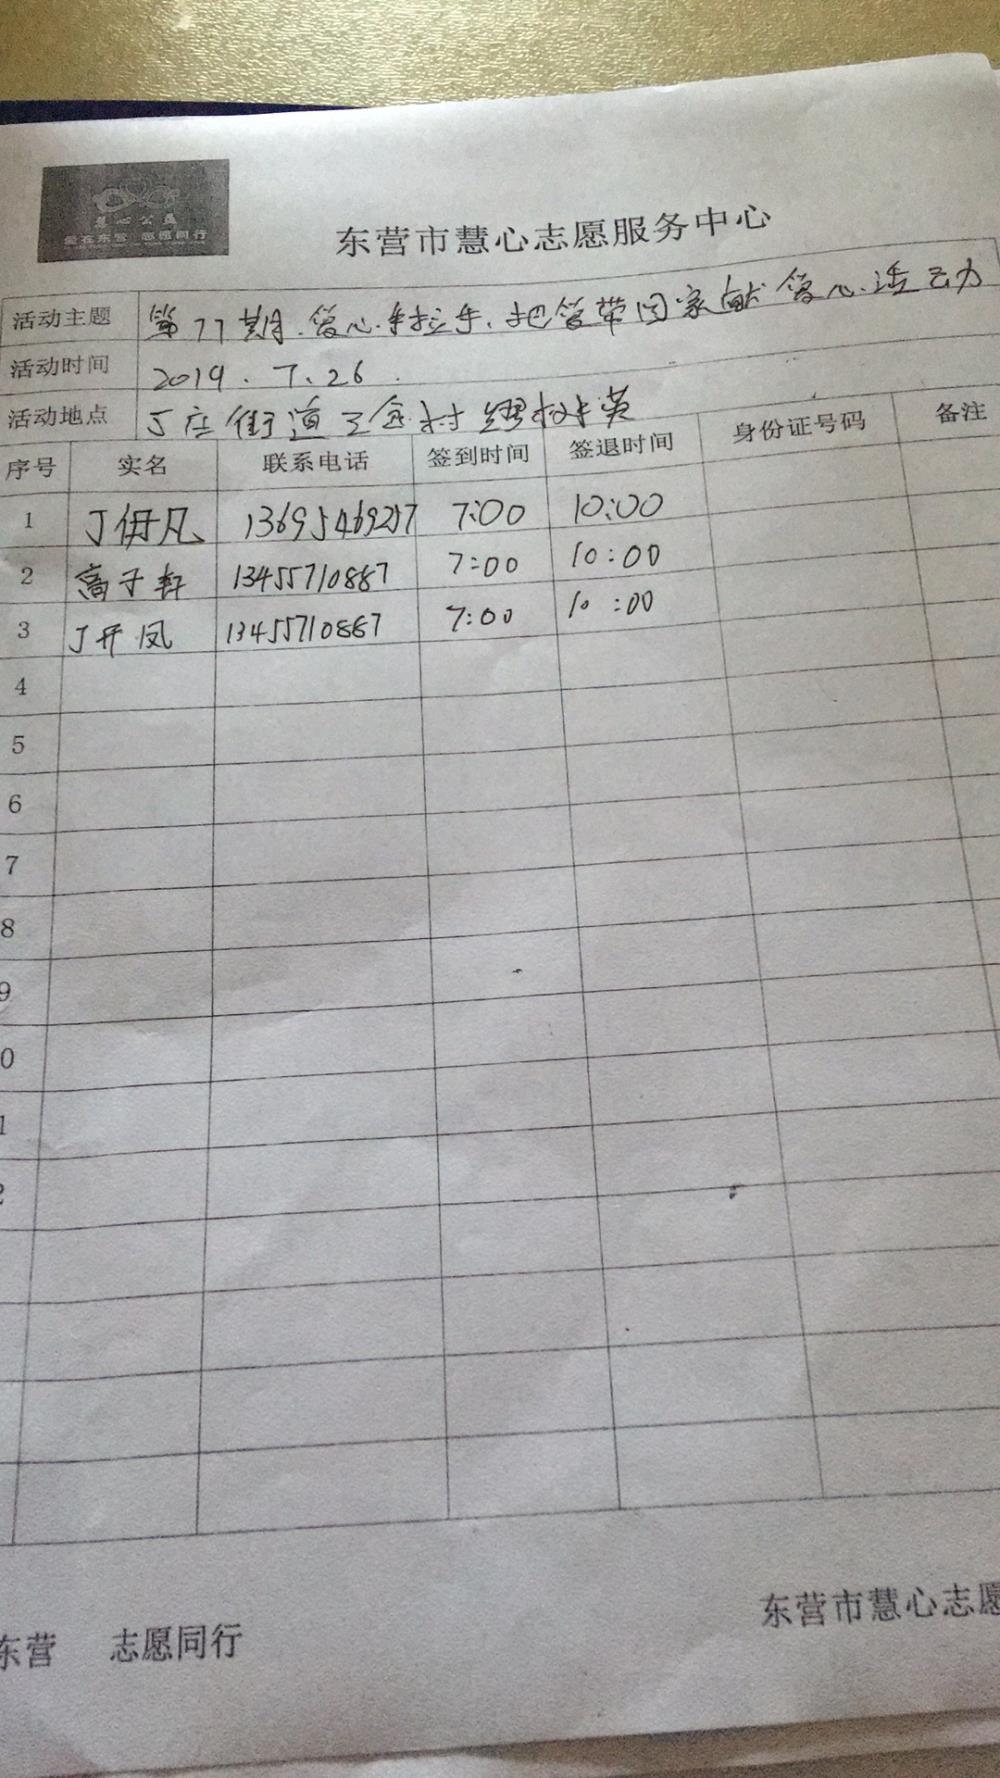 慧心公益
爱在东营 志愿同行
东营市慧心志愿服务中心
活动主题 第77期.爱心.手拉手.把爱带回家献爱心.活动
活动时间 2019.7.26.
活动地点 丁庄街道王舍村
序号 实名 联系电话 签到时间 签退时间 身份证号码 备注
1 丁伊凡 13695469217 7:00 10:00
2 高子轩 13455710887 7:00 10:00
3 丁开凤 13455710887 7:00 10:00
4
5
6
7
8
9
0
1
2
东营 志愿同行
东营市慧心志愿